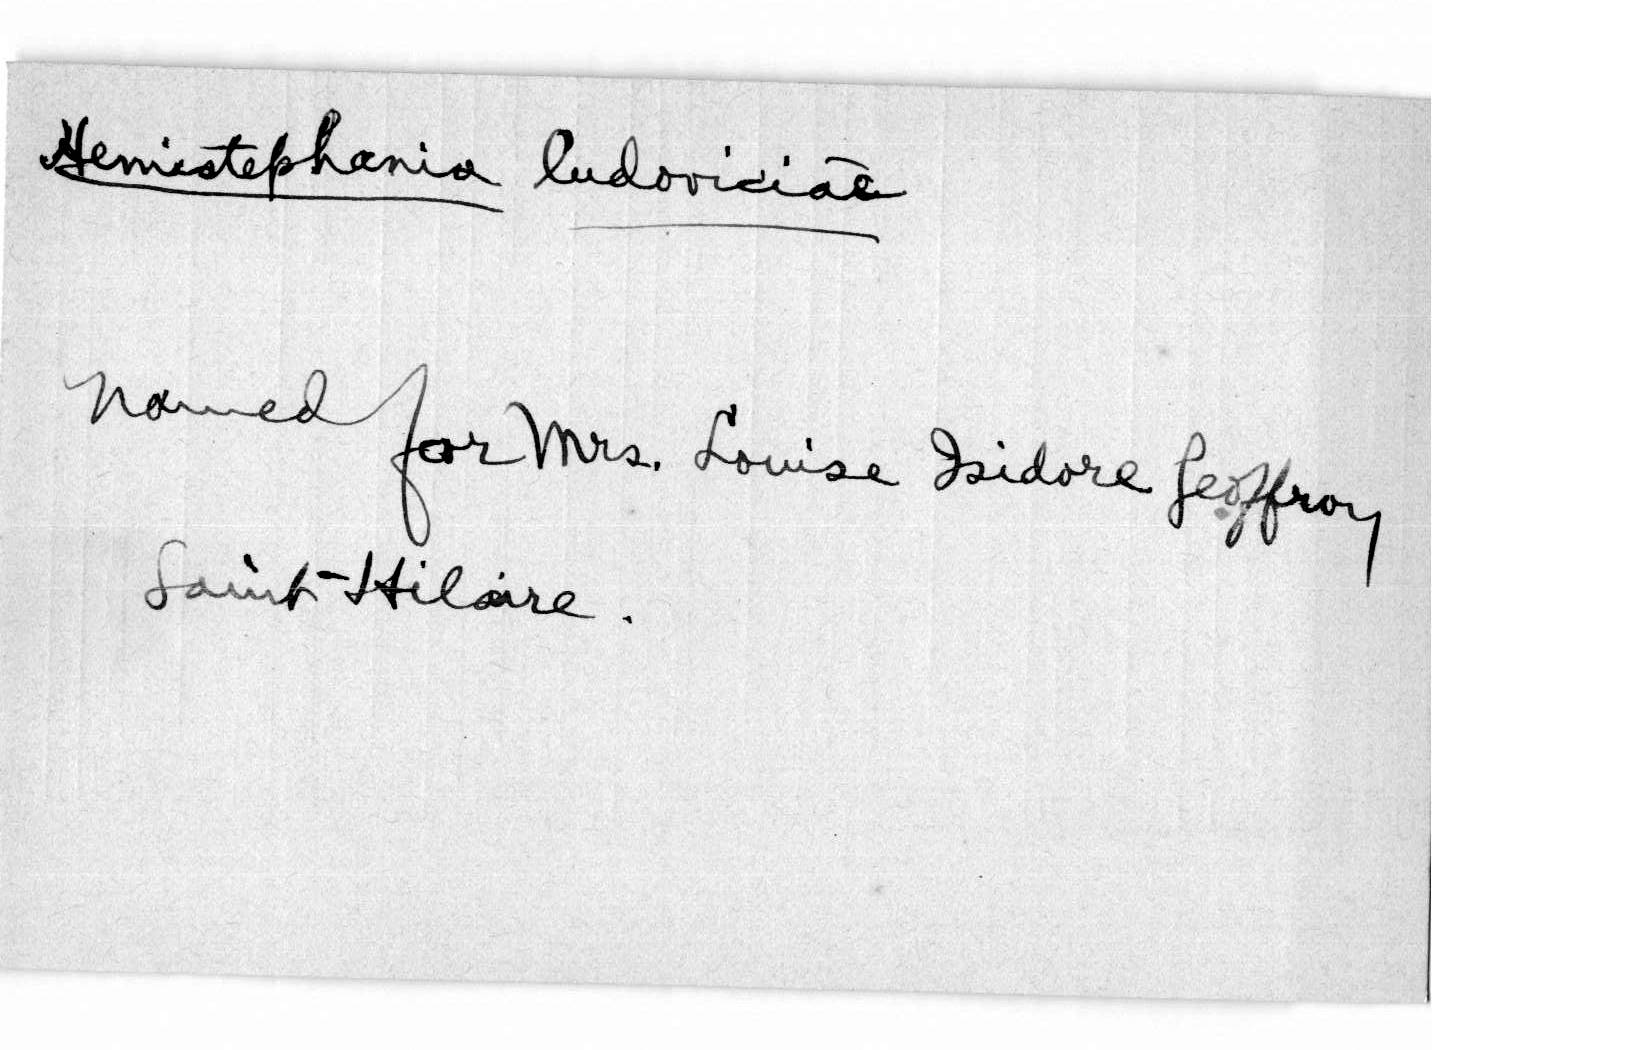 Hemistephania ludoviciae
Named for Mrs. Louise Isidore Geoffroy
Saint-Hilaire.